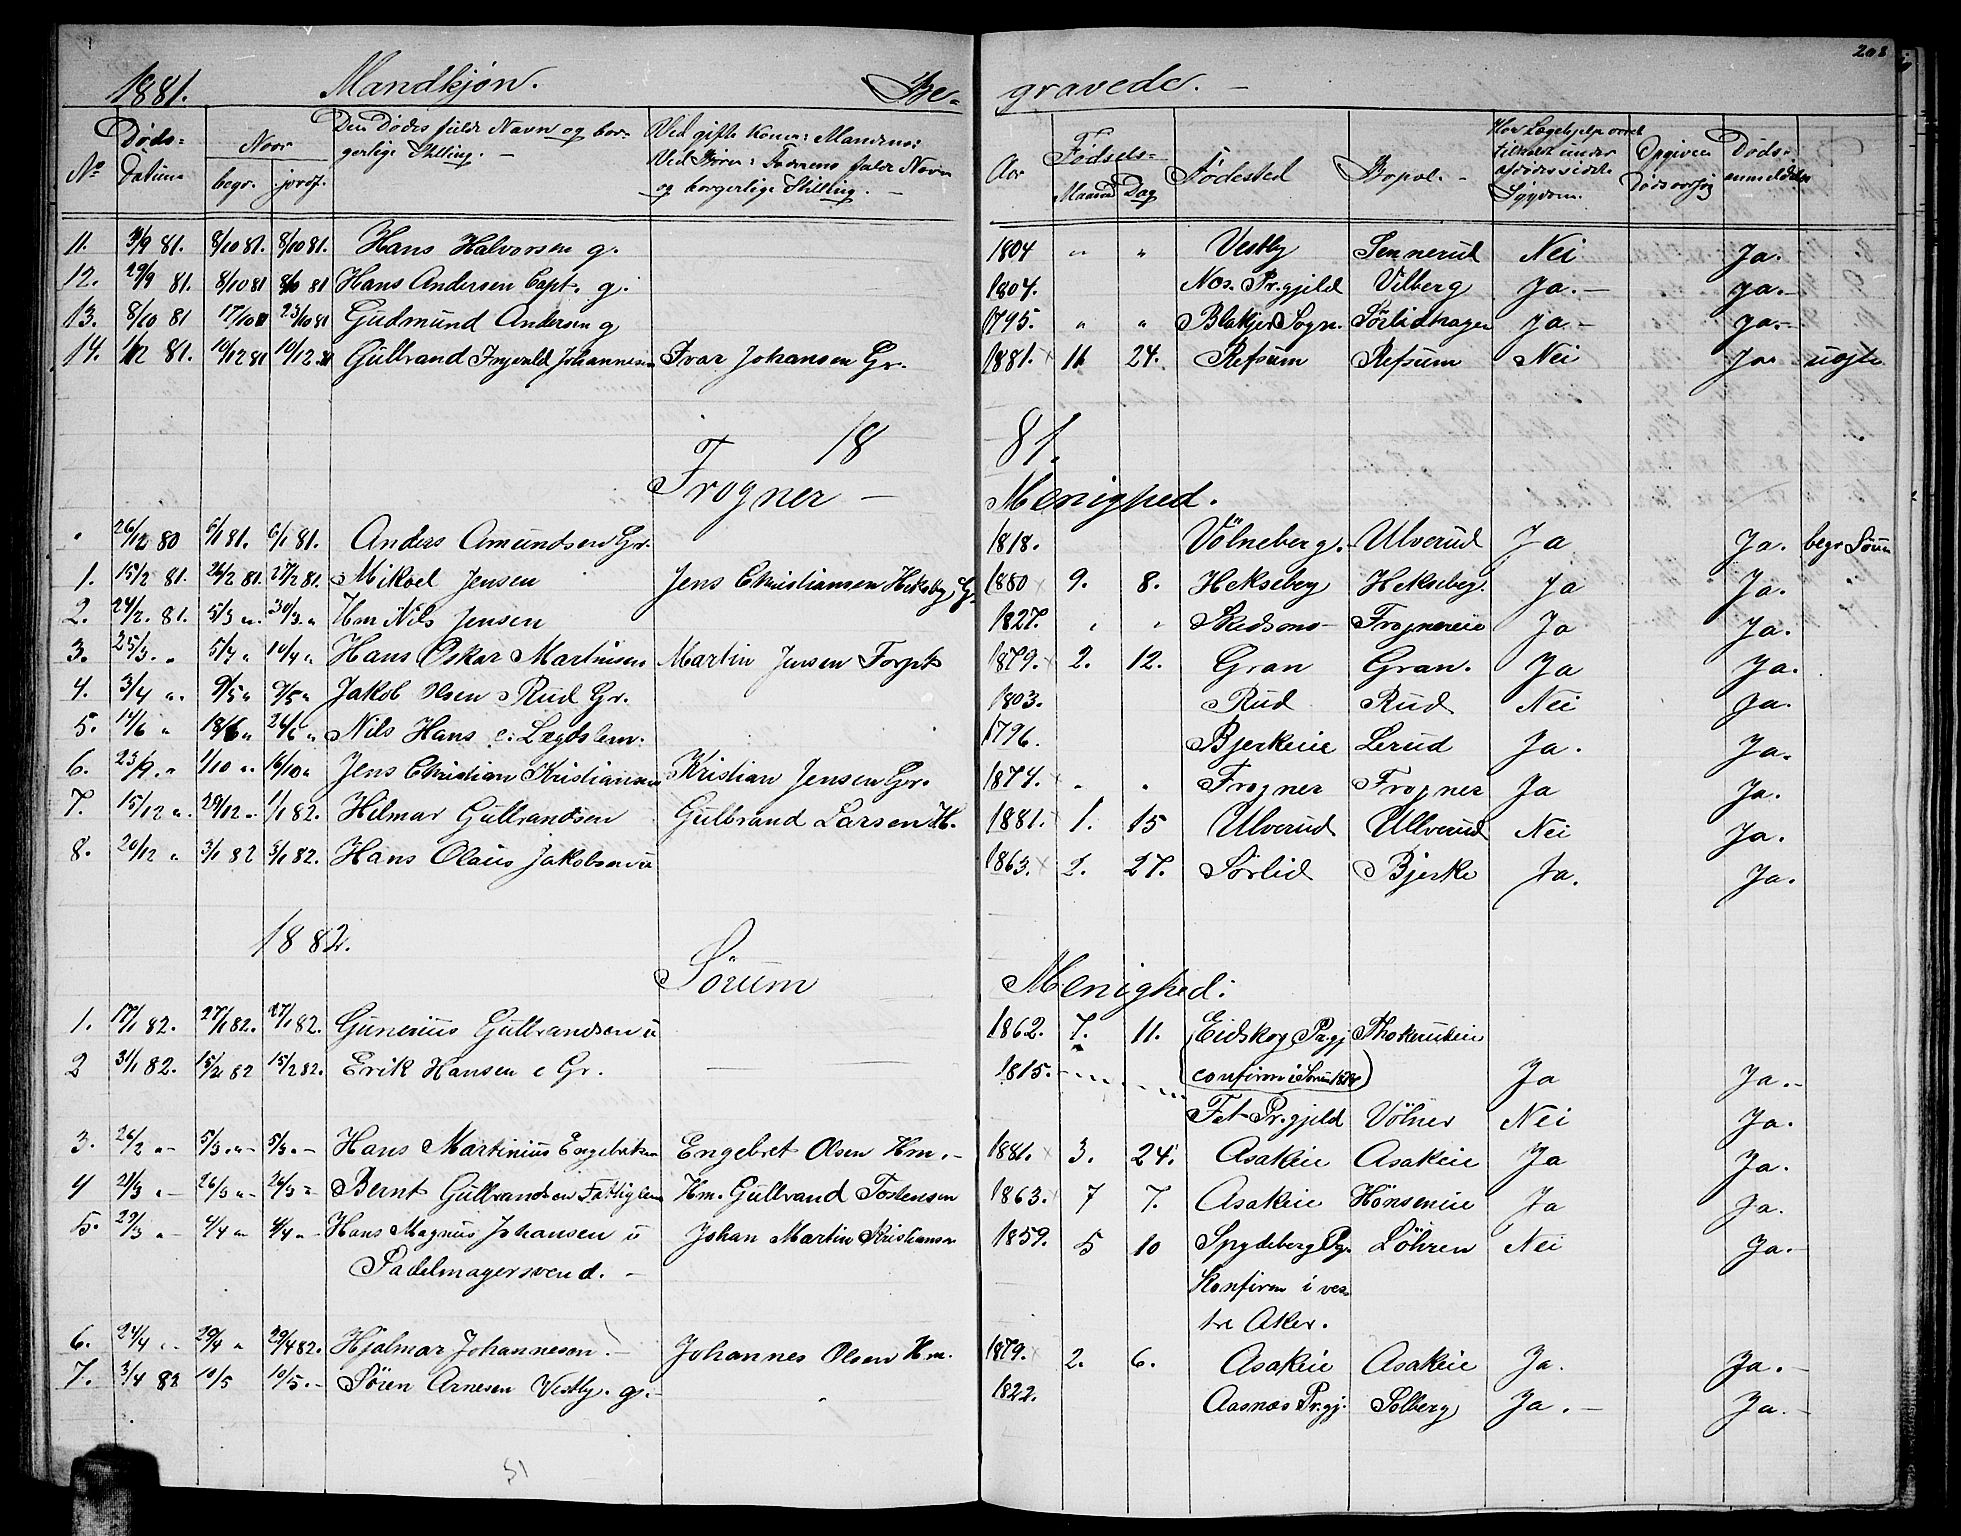 208
1881. Mandkjøn. Be- gravede. -
No Døds- Datum Naar begr. jordf. Den Dødes fulde Navn og bor- gerlige Stilling. - Ved gifte Koner: Mandens: Ved Børn: Faderens fulde Navn og borgerlige Stilling. - Aar Fødsels- Maaned Dag Fødested Bopæl. - Har Lægehjelp været tilkaldt under Sygdom. Opgiven Dødsaarsag Døds- anmeldelse
11. 3/9 81. 8/10 81. 8/10 81. Hans Halvorsen g. 1804 " " Vestby Sennerud Nei Ja.
12. 29/9 81. 8/10 81 8/10 81 Hans Andersen Capt. g. 1804. Nes. Pr.gjeld Vilberg Ja. - Ja. -
13. 8/10 81 17/10 81 23/10 81 Gudmund Andersen g 1795. " " Blakjer Sogn. Sørlidhagen Ja. - Ja. -
14. 1/12 81. 10/12 81 10/12 81 Gulbrand Ingvald Johannesen Ivar Johansen Gr. 1881. 11 24. Refsum Refsum Nei Ja uægte
18 81.
Frogner - Menighed.
" 26/12 80 6/1 81. 6/1 81. Anders Amundsen Gr. 1818. Völneberg. Ulverud Ja Ja. begr Sørum
1. 15/2 81. 26/2 81. 27/2 81. Mikael Jensen Jens Christiansen Heksebg Gr. 1880 9. 8. Hekseberg Hekseberg. Ja Ja. "
2. 24/2. 81. 5/3 ". 30/3. " Hm Nils Jensen 1827. " " Skedsmo Frognereie Ja Ja.
3. 25/3. " 5/4 " 10/4 " Hans Oskar Martinsen Martin Jensen Forpt 1879. 2. 12. Gran Gran. Ja Ja.
4. 3/4 ". 9/5 " 9/5 " Jakob Olsen Rud Gr. 1803. Rud Rud Nei Ja.
5. 14/6 " 18/6 " 24/6 " Nils Hans e: Lægdslem. 1796. Bjerkeeie Lerud Ja. Ja.
6. 23/9. " 1/10 ". 16/10 " Jens Christian Kristiansen Kristian Jensen Gr. 1874. " " Frogner Frogner Ja Ja.
7. 15/12 ". 29/12 ". 1/1 82. Hilmar Gulbrandsen Gulbrand Larsen H. 1881. 1. 15 Ulverud Ullverud Nei Ja.
8. 20/12 " 3/1 82 3/1 82. Hans Olaus Jakobsen u 1863. 2. 27. Sørlid Bjerke Ja. Ja.
1882.
Sörum Menighed:
1. 17/1 82. 27/1 82. 27/1 82. Gunerius Gulbrandsen u 1862. 7. 11. Eidskog Pr.gj
(confirm i Sørum 1878) Ja Ja. -
2 31/1 82. 15/2 82 15/2 82. Erik Hansen e Gr. - 1815. Fet Pr.gjeld Völner Nei Ja.
3. 26/2 " - 5/3. " - 5/3. " - Hans Martinius Engebretsen Engebret Olsen Hm. - 1881. 3. 24. Asakeie Asakeie Ja Ja.
4 21/3 " - 26/3 " - 26/3 " Bernt Gulbrandsen Fattiglem Hm. Gulbrand Tostensen 1863. 7 7. Asakeie Hönseneie Ja Ja.
5. 29/3 " - 4/4 " 4/4 " - Hans Magnus Johansen u Johan Martin Kristiansen 1859. 5 10 Spydeberg Pgj. Löhren Nei Ja. -
Sadelmagersvend. - Konfirm i ves-
tre Aker.
6. 24/4 " 29/4 " 29/4 82. Hjalmar Johannesen. - Johannes Olsen Hm. 1879. 2. 6. Asakeie Asakeie Ja. Ja. -
7. 3/4 82 10/5 10/5. - Sören Arnesen Vestby. g. - " 1822. Aasnæs Pr.gj. Solberg Ja. - Ja. -
51